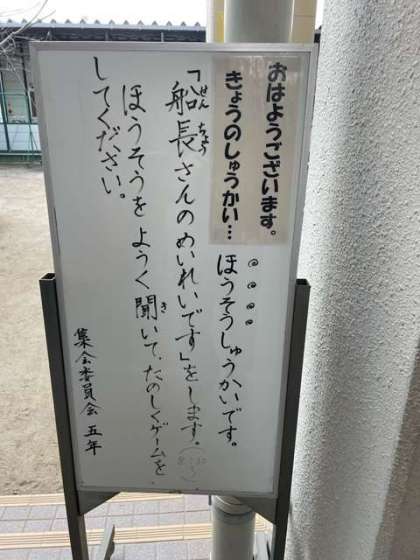 おはようございます。
きょうのしゅうかい…
ほうそうしゅうかいです。
「船長さんのめいれいです」をします。
せんちょう
ほうそうを ようく聞いて、たのしくゲームを
き
してください。
集会委員会 五年